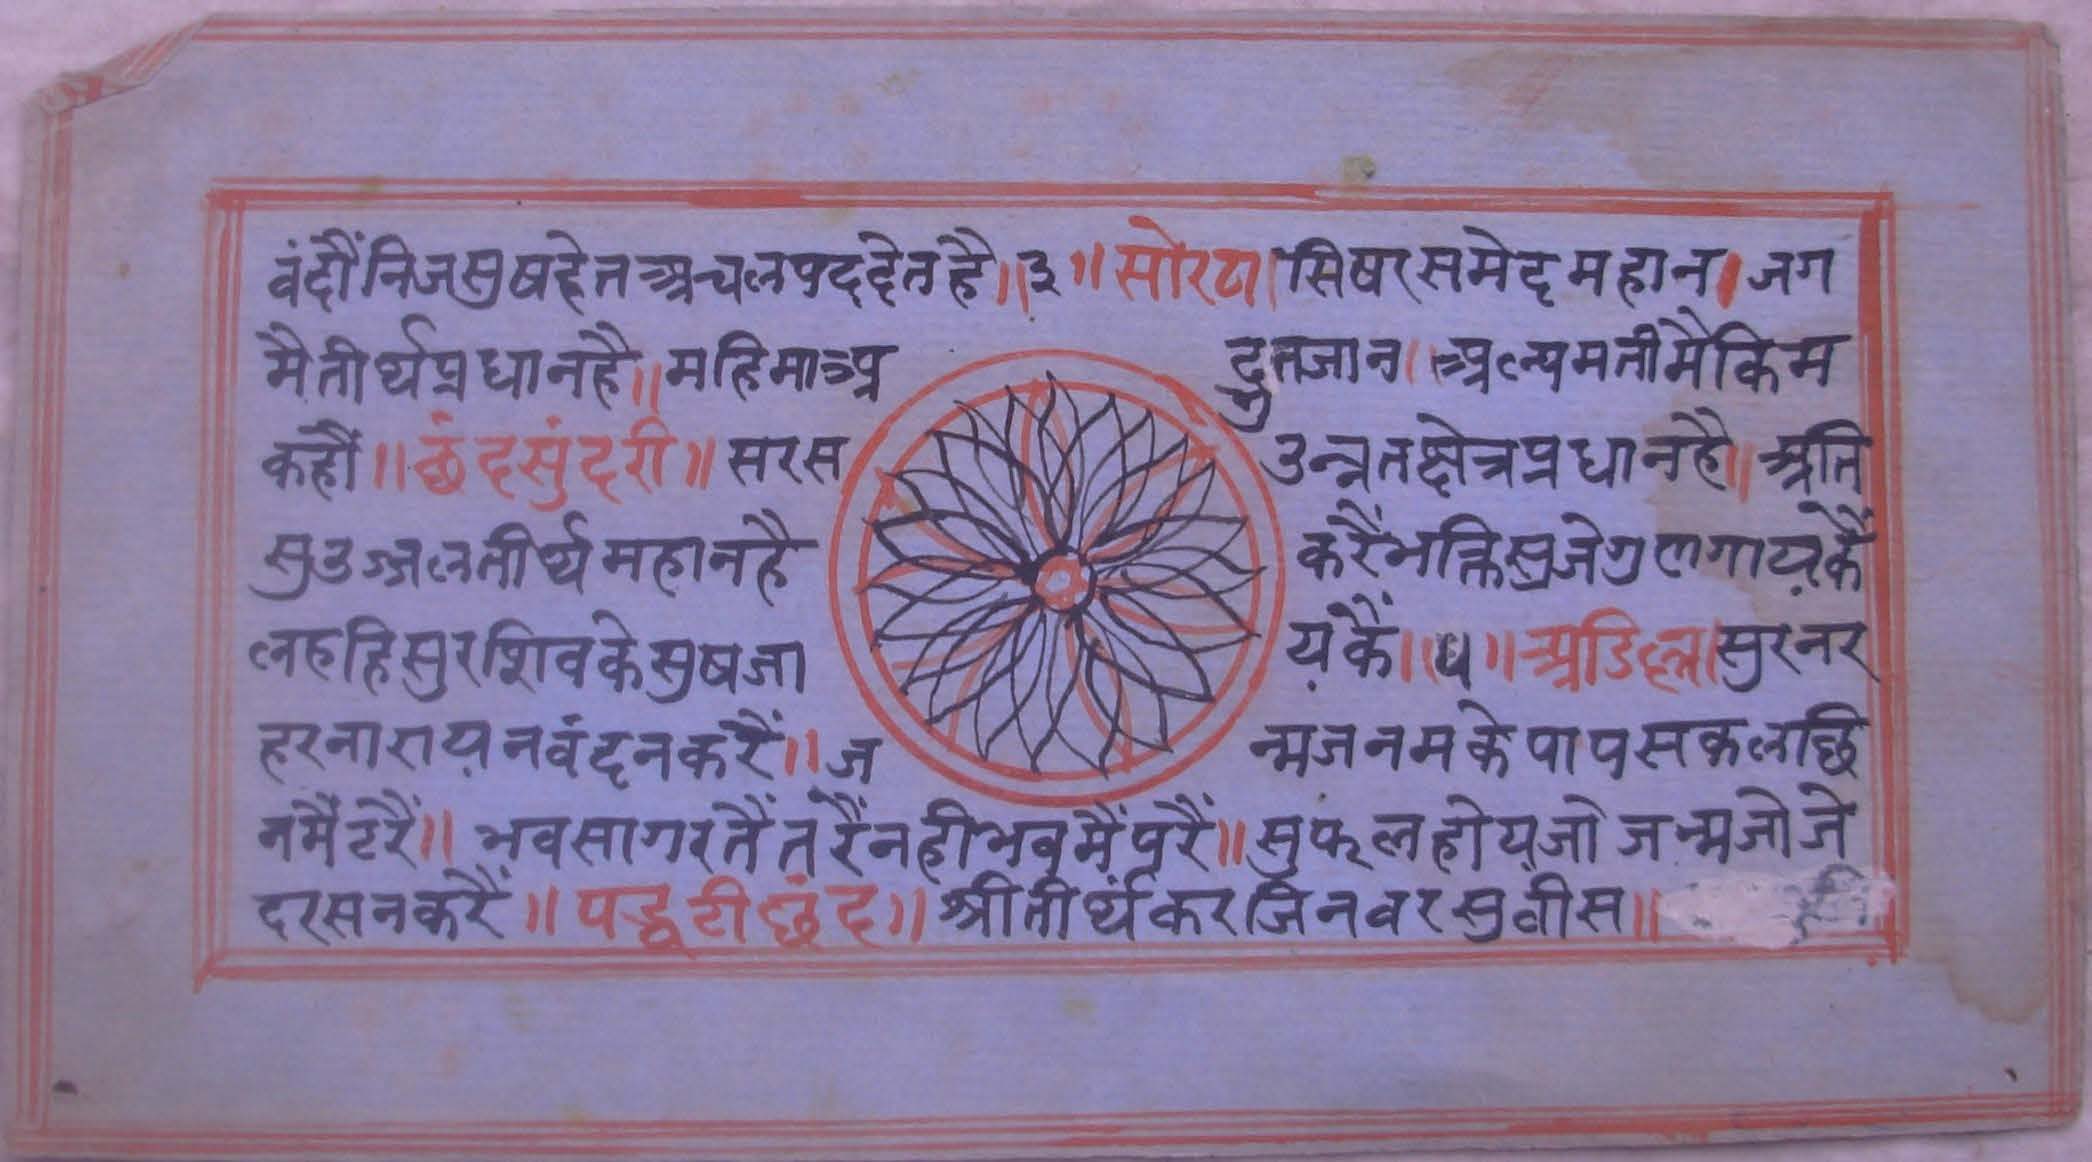 वंदौंनिजसुषहेतअचलपददेतहै॥३॥सोरठा।सिषरसमेदमहान।जग
मैतीर्थप्रधानहै॥महिमाअद्रुतजान।अल्पमतीमैकिम
कहौं॥छंदसुंदरी॥सरसउन्नतक्षेत्रप्रधानहै॥अति
सुउज्जलतीर्थमहानहैकरैंभक्तिसुजेगुणगायकैं
लहहिसुरशिवकेसुषजायकैं॥५॥अडिल्ल।सुरनर
हरनारायनवंदनकरैं॥जन्मजनमकेपापसकलछि
नमैंटरैं॥भवसागरतैंतरैंनहीभवमैंपरैं॥सुफलहोयजोजन्मजोजे
दरसनकरैं॥पद्धटीछंद॥श्रीतीर्थंकरजिनवरसुवीस॥